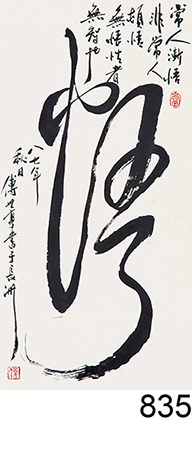 常人漸悟
非常人
頓悟
無悟性者
無智也
悟
八七年
秋日
傅世亨書于長洲
835